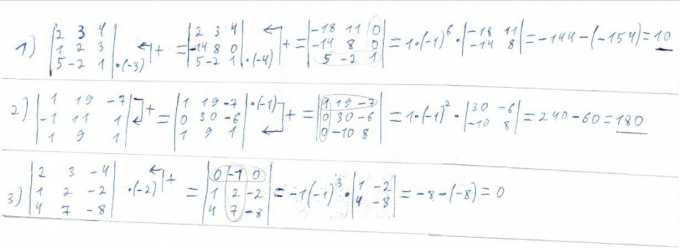 1) |2 3 4; 1 2 3; 5 -2 1| ·(-3) ↵+ = |2 3 4; -14 8 0; 5 -2 1| ·(-4) ↵+ = |-18 11 0; -14 8 0; 5 -2 1| = 1·(-1)⁶·|-18 11; -14 8| = -144-(-154) = 10
2) |1 19 -7; -1 11 1; 1 9 1| ↵+ = |1 19 -7; 0 30 -6; 1 9 1| ·(-1) ↵+ = |1 19 -7; 0 30 -6; 0 -10 8| = 1·(-1)²·|30 -6; -10 8| = 240-60 = 180
3) |2 3 -4; 1 2 -2; 4 7 -8| ·(-2) ↵+ = |0 -1 0; 1 2 -2; 4 7 -8| = -1(-1)³·|1 -2; 4 -8| = -8-(-8) = 0